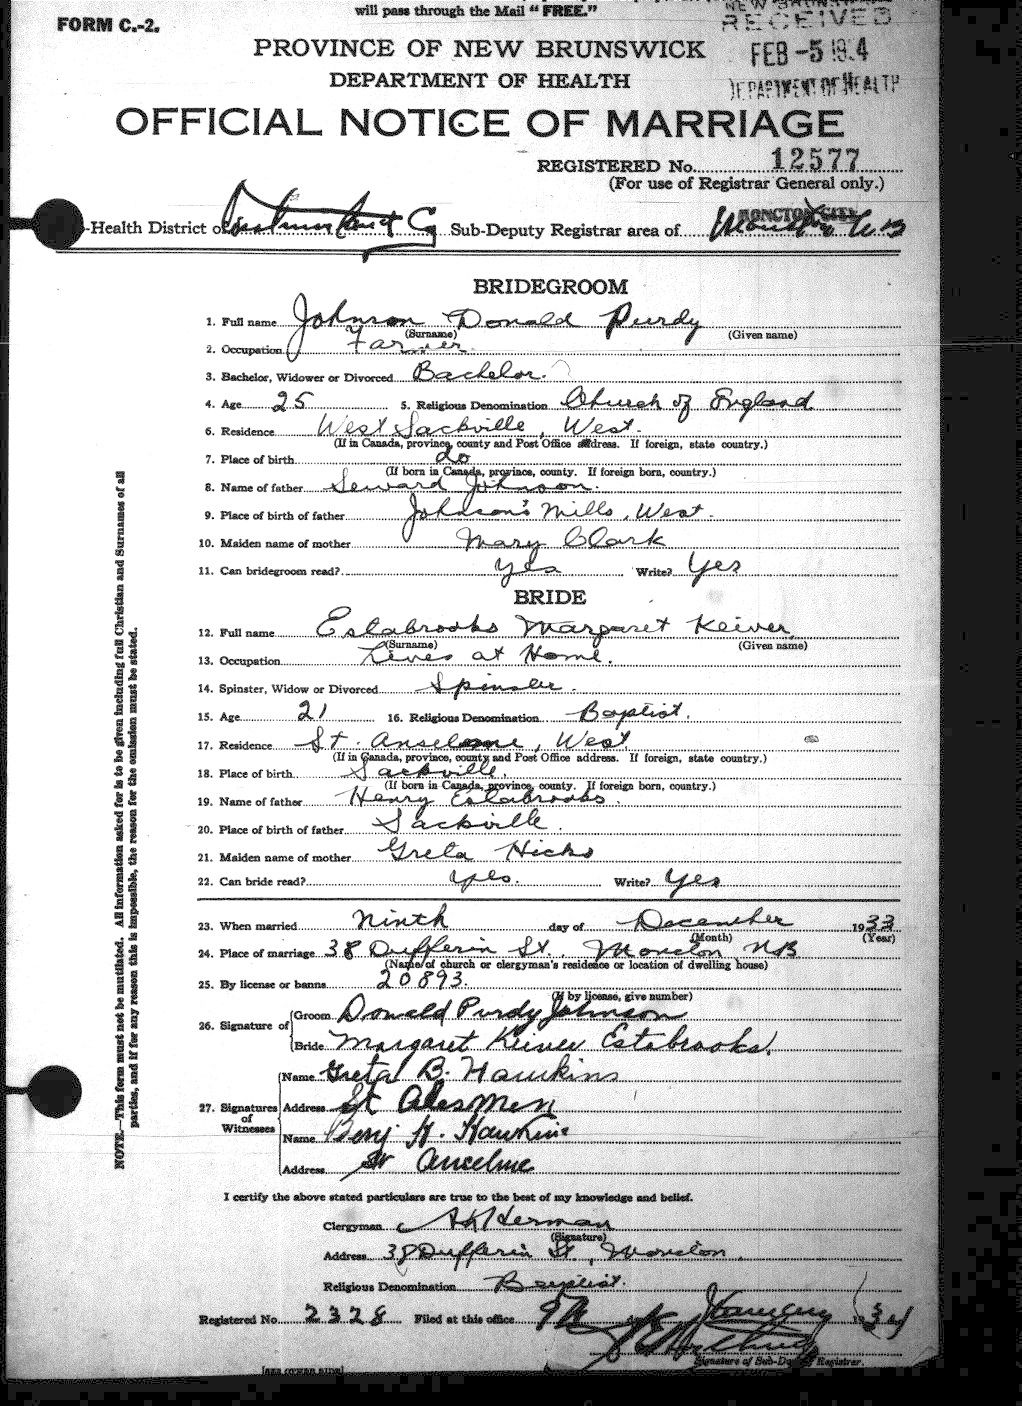 will pass through the Mail "FREE."
FORM C.-2.
RECEIVED
PROVINCE OF NEW BRUNSWICK
FEB -5 1934
DEPARTMENT OF HEALTH
DEPARTMENT OF HEALTH
OFFICIAL NOTICE OF MARRIAGE
REGISTERED No. 12577
(For use of Registrar General only.)
MONCTON CITY
-Health District of Co Sub-Deputy Registrar area of
BRIDEGROOM
1. Full name Johnson Donald Purdy
(Surname) (Given name)
2. Occupation Farmer
3. Bachelor, Widower or Divorced Bachelor.
4. Age 25 5. Religious Denomination Church of England
6. Residence West Sackville, West.
(If in Canada, province, county and Post Office address. If foreign, state country.)
7. Place of birth do
(If born in Canada, province, county. If foreign born, country.)
8. Name of father Seward Johnson.
9. Place of birth of father Johnson's Mills, West.
10. Maiden name of mother Mary Clark
11. Can bridegroom read? Yes Write? Yes
BRIDE
12. Full name Estabrooks Margaret Keiver
(Surname) (Given name)
13. Occupation Lives at Home.
14. Spinster, Widow or Divorced Spinster.
15. Age 21 16. Religious Denomination Baptist.
17. Residence St. Anselme, West
(If in Canada, province, county and Post Office address. If foreign, state country.)
18. Place of birth Sackville.
(If born in Canada, province, county. If foreign born, country.)
19. Name of father Henry Estabrooks.
20. Place of birth of father Sackville.
21. Maiden name of mother Greta Hicks
22. Can bride read? Yes. Write? Yes
23. When married Ninth day of December 1933
(Month) (Year)
24. Place of marriage 38 Dufferin St., Moncton NB
(Name of church or clergyman's residence or location of dwelling house)
25. By license or banns 20893.
(If by license, give number)
26. Signature of Groom Donald Purdy Johnson
Bride Margaret Keiver Estabrooks.
27. Signatures of Witnesses
Name Greta B. Hawkins
Address St
Name Benj H. Hawkins
Address St Anselme
I certify the above stated particulars are true to the best of my knowledge and belief.
Clergyman Herman
(Signature)
Address 38 Dufferin St., Moncton.
Religious Denomination Baptist.
Registered No. 2328 Filed at this office 9th January 1934
Signature of Sub-Deputy Registrar.
NOTE.—This form must not be mutilated. All information asked for is to be given including full Christian and Surnames of all
parties, and if for any reason this is impossible, the reason for the omission must be stated.